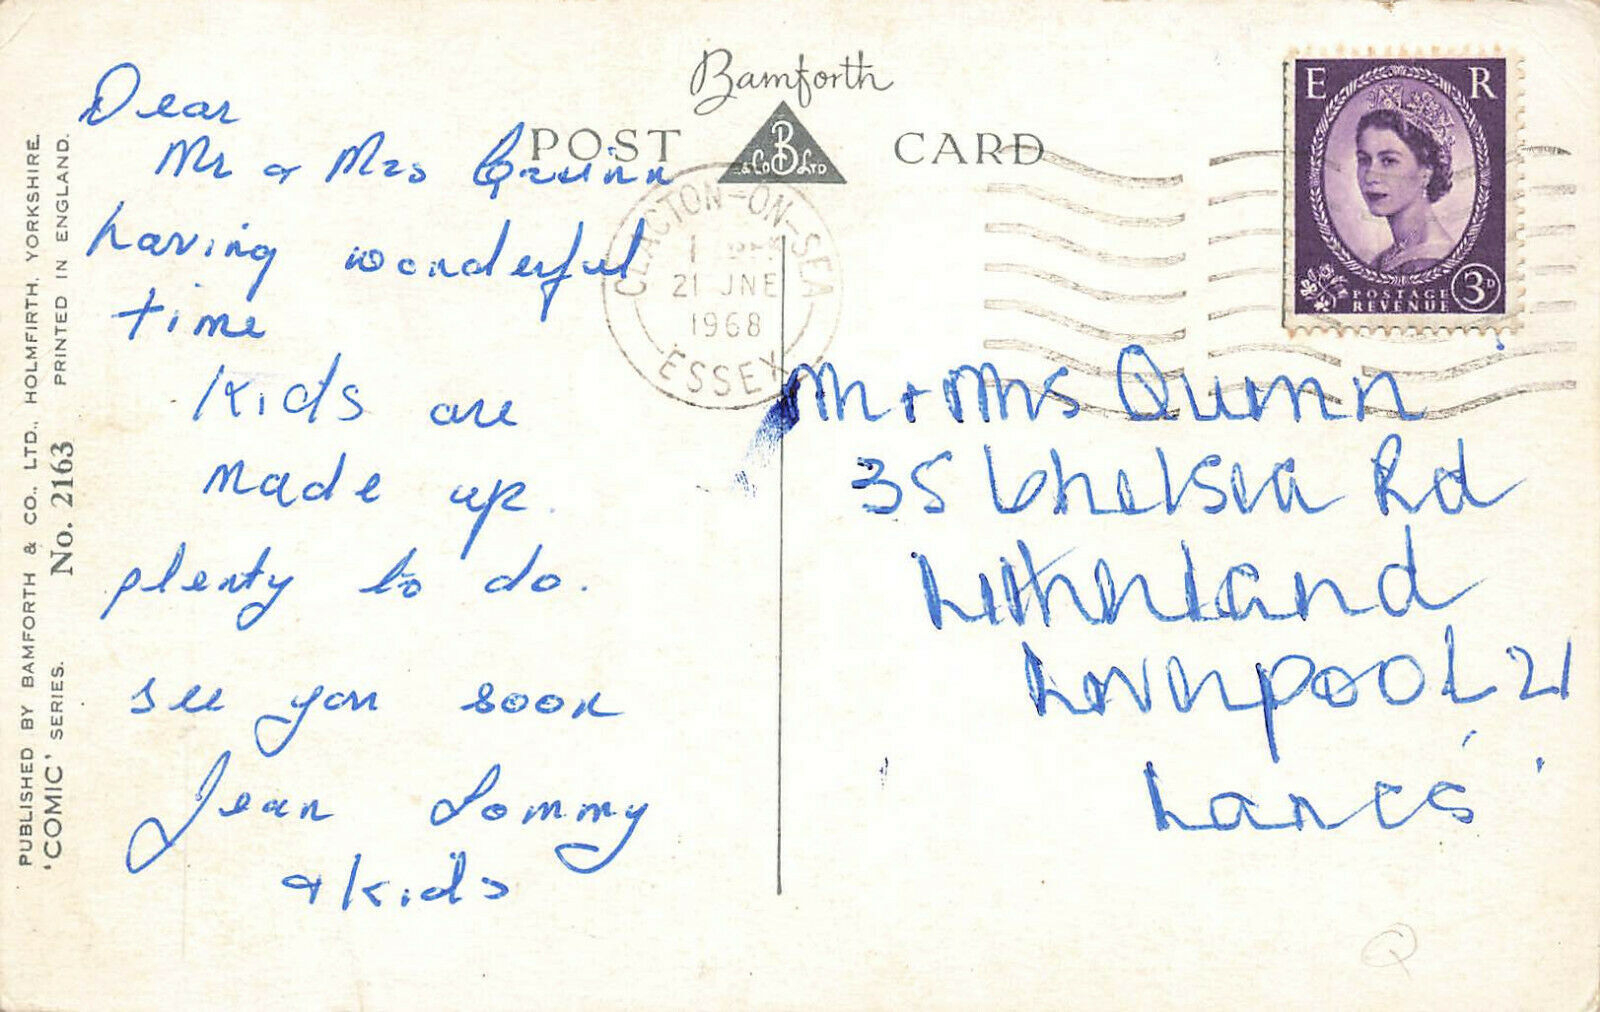 Bamforth
POST CARD
B
& Co LTD
E R
POSTAGE
REVENUE
3D
CLACTON-ON-SEA
21 JNE
1968
ESSEX
Dear
Mr & Mrs Quinn
having wonderful
time
Kids are
made up.
plenty to do.
see you soon
Jean Tommy
& Kids
Mr + Mrs Quinn
35 Chelsea Rd
Litherland
Liverpool 21
Lancs
PUBLISHED BY BAMFORTH & CO., LTD., HOLMFIRTH, YORKSHIRE.
'COMIC' SERIES. No. 2163 PRINTED IN ENGLAND.
Q